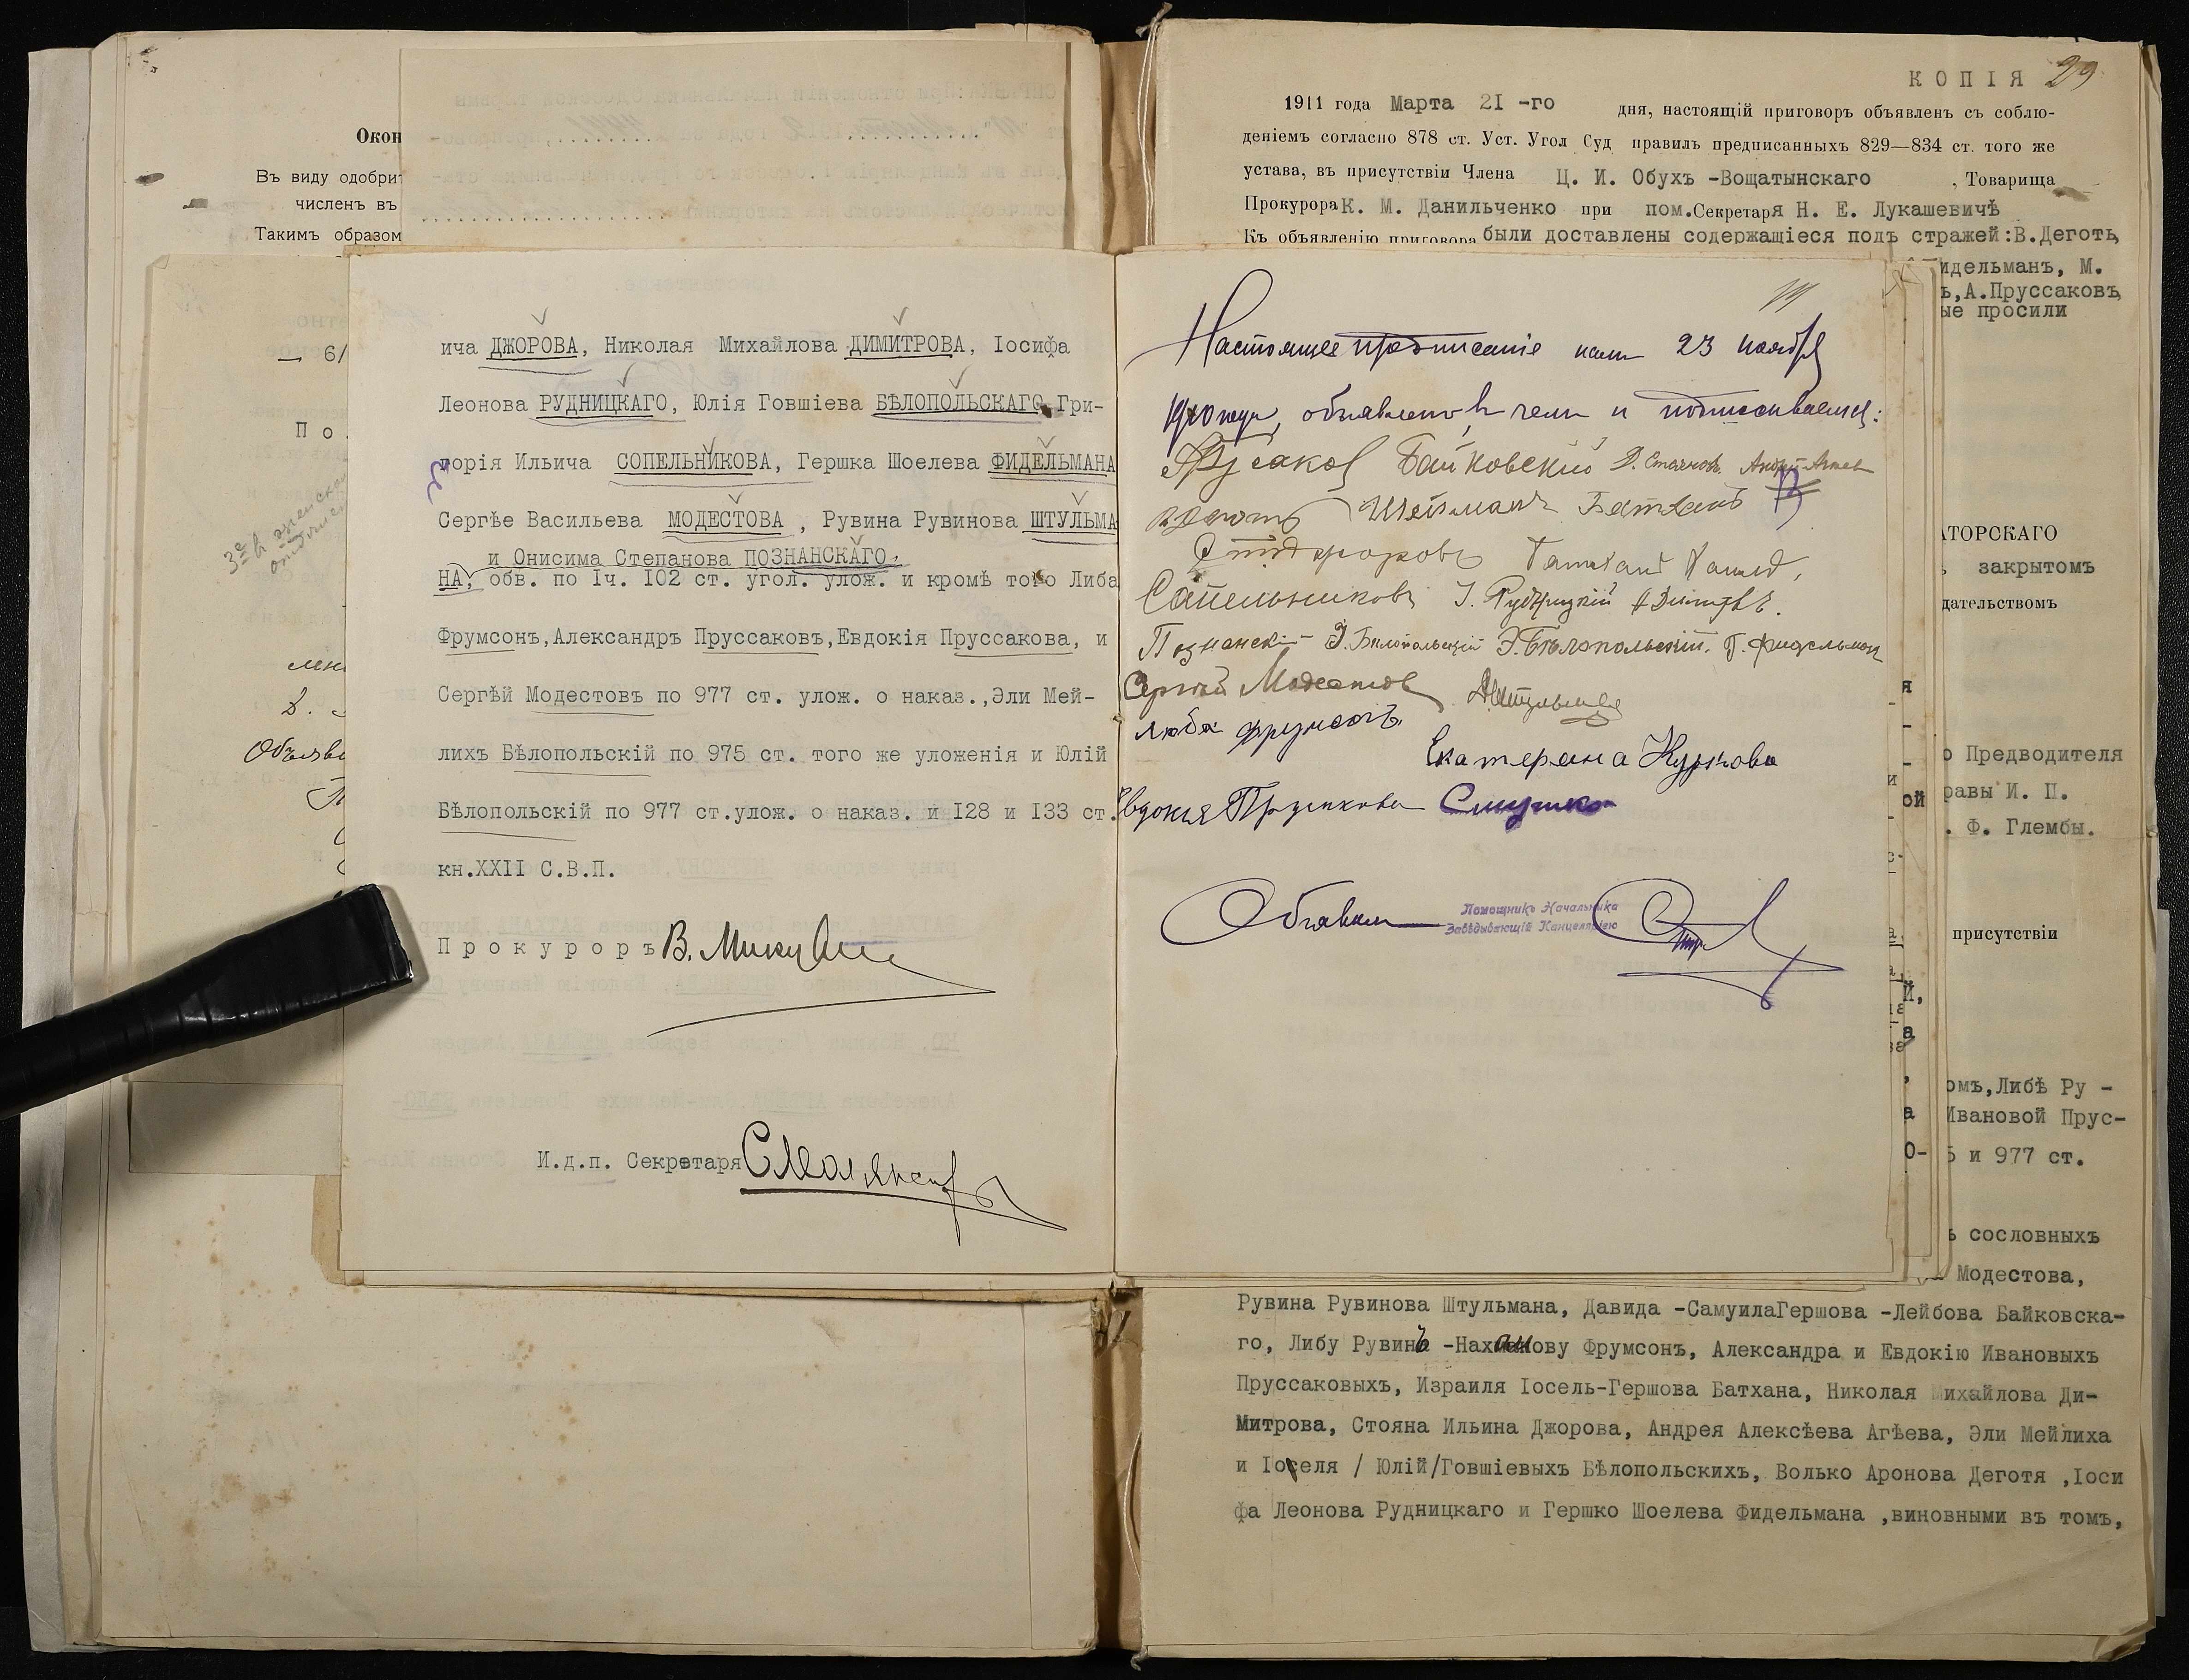 Окон
Въ виду одобрит
численъ въ
Такимъ образом
— 6/
По
Объявл
ича ДЖОРОВА, Николая Михайлова ДИМИТРОВА, Іосифа
Леонова РУДНИЦКАГО, Юлія Говшіева БѢЛОПОЛЬСКАГО, Гри-
горія Ильича СОПЕЛЬНИКОВА, Гершка Шоелева ФИДЕЛЬМАНА
Сергѣе Васильева МОДЕСТОВА , Рувина Рувинова ШТУЛЬМА
и Онисима Степанова ПОЗНАНСКАГО.
НА, обв. по Iч. I02 ст. угол. улож. и кромѣ того Либа
Фрумсонъ,Александръ Пруссаковъ,Евдокія Пруссакова, и
Сергѣй Модестовъ по 977 ст. улож. о наказ.,Эли Мей-
лихъ Бѣлопольскій по 975 ст. того же уложенія и Юлій
Бѣлопольскій по 977 ст.улож. о наказ. и I28 и I33 ст.
кн.XXII С.В.П.
Прокуроръ
И.д.п. Секретаря
Настоящее предписаніе намъ 23 ноября
1910 года объявлено, въ чемъ и подписываемся:
Байковскій Д. Стоянов. Андрей Агѣев
Штейман Батхань
Сапельниковъ І. Рудницкій
Познанскі Э. Бѣлопольскій. Г. Фидельман
Сергѣй Модестов
Люба Фрумсонъ
Екатерина Куркова
Евдокія Прусакова
Объявилъ Помощникъ Начальника
Завѣдывающій Канцеляріею
КОПІЯ 29
1911 года Марта 2I -го дня, настоящій приговоръ объявленъ съ соблю-
деніемъ согласно 878 ст. Уст. Угол Суд правилъ предписанныхъ 829—834 ст. того же
устава, въ присутствіи Члена Ц. И. Обухъ -Вощатынскаго , Товарища
Прокурора К. М. Данильченко при пом.Секретаря Н. Е. Лукашевичѣ
Къ объявленію приговора были доставлены содержащіеся подъ стражей:В.Деготь,
идельманъ, М.
ъ,А.Пруссаковъ,
ые просили
АТОРСКАГО
закрытомъ
дательствомъ
о Предводителя
равы И. П.
. Ф. Глембы.
присутствіи
омъ,Либѣ Ру -
Ивановой Прус-
5 и 977 ст.
ъ сословныхъ
Модестова,
Рувина Рувинова Штульмана, Давида -СамуилаГершова -Лейбова Байковска-
го, Либу Рувинъ -Нахамову Фрумсонъ, Александра и Евдокію Ивановыхъ
Пруссаковыхъ, Израиля Іосель-Гершова Батхана, Николая Михайлова Ди-
митрова, Стояна Ильина Джорова, Андрея Алексѣева Агѣева, Эли Мейлиха
и Іоселя / Юлій/Говшіевыхъ Бѣлопольскихъ, Волько Аронова Деготя ,Іоси
фа Леонова Рудницкаго и Гершко Шоелева Фидельмана ,виновными въ томъ,